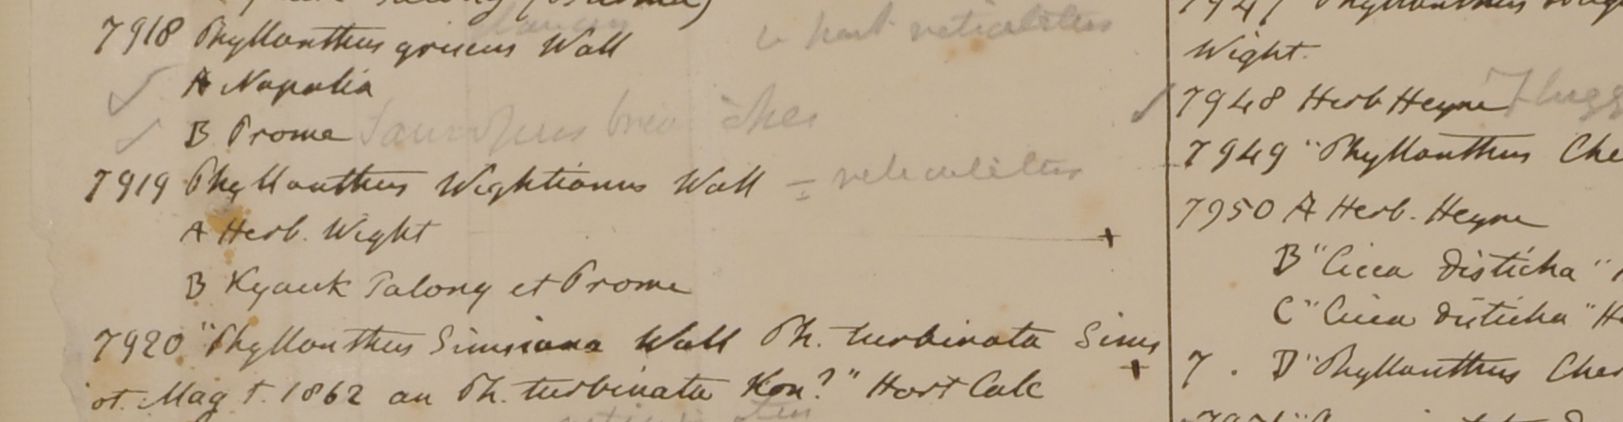 7918 Phyllanthus griseus Wall in part reticulatus
A Napalia
B Prome Sauropus
7919 Phyllanthus Wightianus Wall = reticulatus
A Herb. Wight +
B Kyauk Talong et Prome
7920 "Phyllanthus Simsiana Wall Ph. turbinata Sims
ot. Mag t. 1862 an Ph. turbinata Kon?" Hort Calc +
7947 Phyllanthus
Wight.
7948 Herb Heyne Flugg
7949 "Phyllanthus Che
7950 A Herb. Heyne
B "Cicca disticha"
C "Cicca disticha" H
7 . D "Phyllanthus Cher